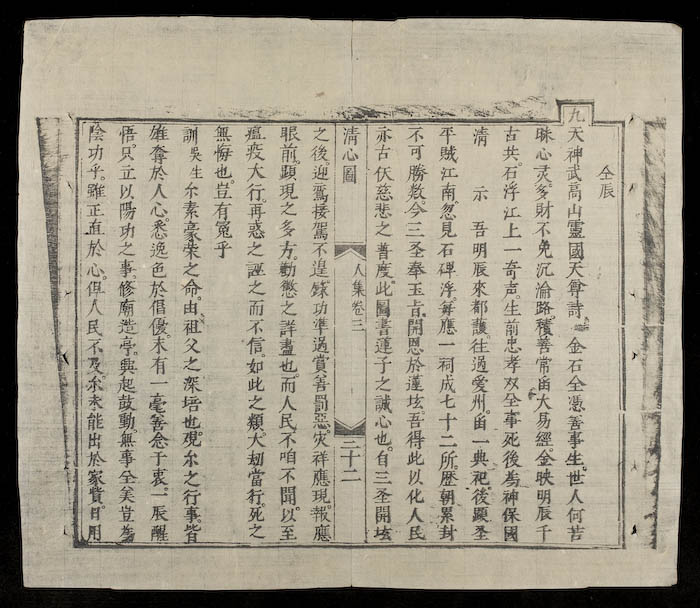 仝辰
九天神武高山靈國天尊詩。金石全憑善事生。世人何苦
昧心灵。多財不免沉淪路。積善常留大易經。金映明辰千
古共。石浮江上一奇声。生前忠孝双全事。死後為神保國
清 示 吾明辰來都護往過愛州。留一典祀。後顕圣
平賊江南。忽見石碑浮。每應一祠。成七十二所。歷朝累封
不可勝数。今三圣奉玉旨。開恩於蓬垓。吾得此以化人民
永古伏慈悲之普度。此圖書蓮子之誠心也。自三圣開垓
清心圖
人集卷三
三十二
之後。迎鸞接駕不遑。錄功準過。賞善罰惡。灾祥應現。報應
眼前。顕現之多方。勸懲之詳盡也。而人民不咱不聞。以至
瘟疫大行。再惑之誣之而不信。如此之類。大刼當行。死之
無悔也。豈有冤乎
訓 吳生尒素豪荣之命。由祖父之深培也。观尒之行事。皆
雄奪於人心。悉逸色於倡優。未有一毫善念于衷。一辰醒
悟。只立以陽功之事。修廟造亭。典起鼓動無事全美。豈為
陰功乎。雖正直於心。俾人民不及。尒未能出於家貲。日用